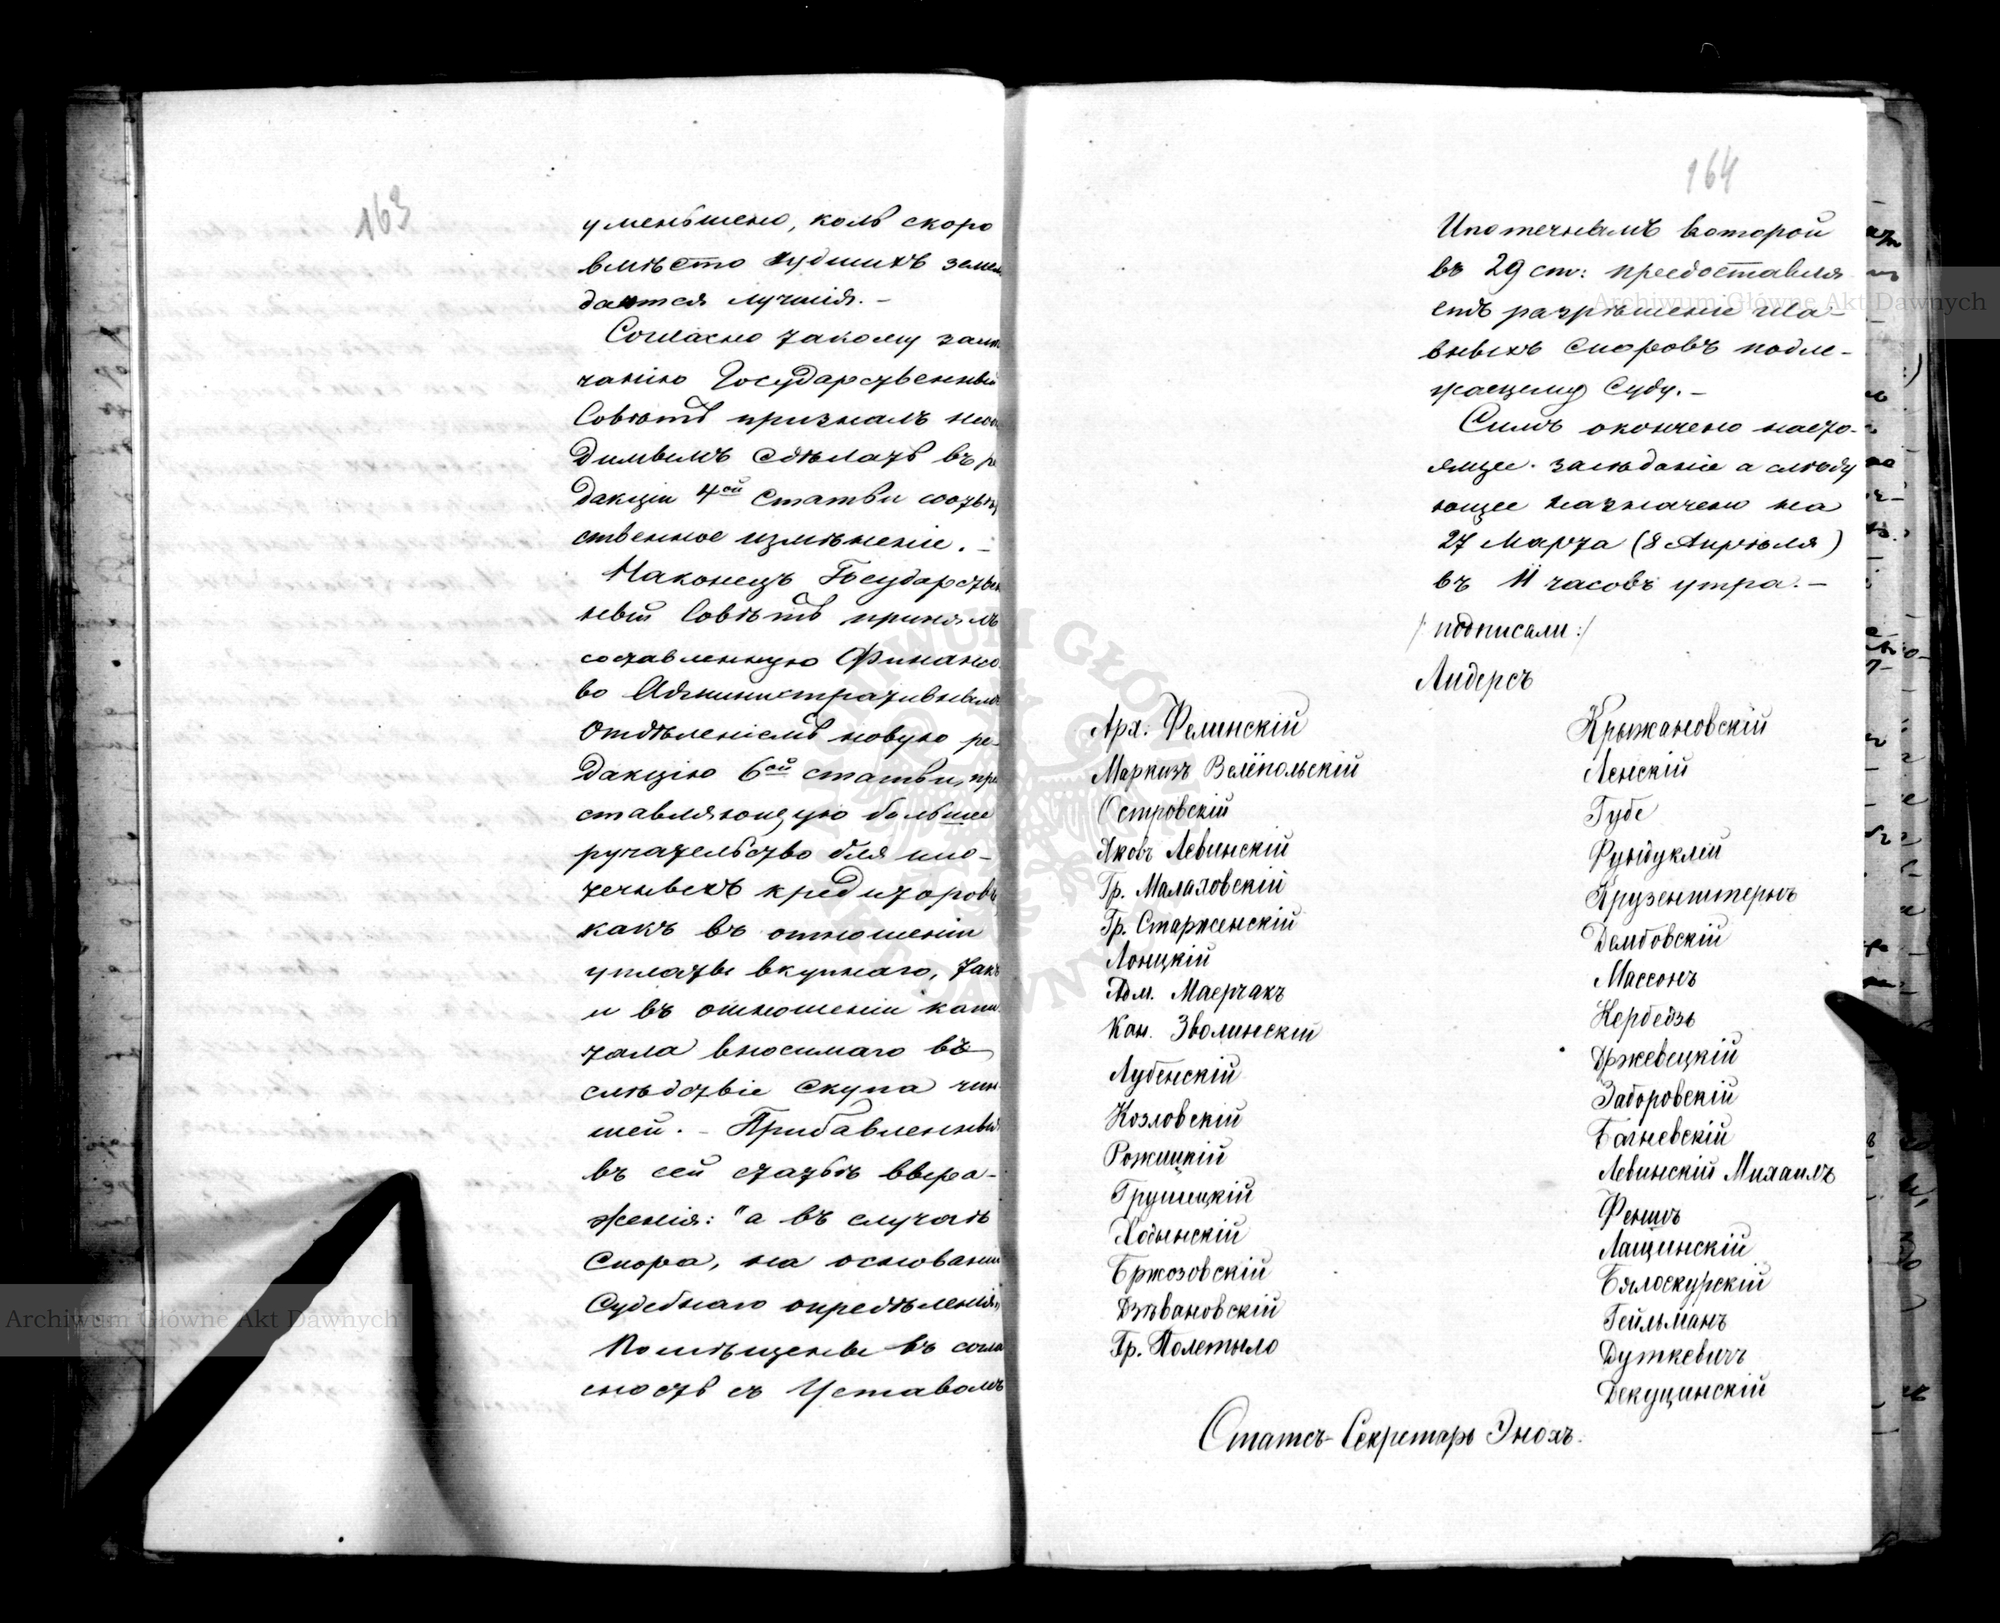 163
уменьшено, коль скоро
вмѣсто худшихъ земель
даются лучшія. –
Согласно такому замѣ
чанію Государственный
Совѣтъ призналъ необхо
димымъ сдѣлать въ ре
дакціи 4ой статьи соотвѣт
ственное измѣненіе. –
Наконецъ Государствен
ный Совѣтъ принялъ
составленную Финансо
во Административнымъ
Отдѣленіемъ новую ре-
дакцію 6ой статьи, пред
ставляющую большее
ручательство для ипо-
течныхъ кредиторовъ,
какъ въ отношеніи
уплаты вкупнаго, такъ
и въ отношеніи капи
тала вносимаго въ
слѣдствіе скупа чин
шей. – Прибавленныя
въ сей статьѣ выра-
женія: "а въ случаѣ
спора, на основаніи
судебнаго опредѣленія"
помѣщены въ согла
сность съ Уставомъ
164
Ипотечнымъ которой
въ 29 ст: предоставля
етъ разрѣшеніе гла-
вныхъ споровъ подле-
жащему Суду. –
Симъ окончено насто-
ящее засѣданіе а слѣду
ющее назначено на
27 Марта (8 Апрѣля)
въ 11 часовъ утра. –
/подписали:/
Лидерсъ
Арх: Фелинскій
Маркизъ Велёпольскій
Островскій
Яковъ Левинскій
Гр. Малаховскій
Гр. Старженскій
Лонцкій
Адм. Маерчакъ
Кан. Зволинскій
Лубенскій
Козловскій
Рожицкій
Грушецкій
Ходынскій
Бржозовскій
Дзѣвановскій
Гр. Полетыло
Крыжановскій
Ленскій
Губе
Фундуклей
Крузенштернъ
Дембовскій
Массонъ
Кербедзь
Држевецкій
Заборовскій
Багневскій
Левинскій Михаилъ
Феншъ
Лащинскій
Бялоскурскій
Гейльманъ
Дуткевичъ
Декуцинскій
Статсъ-Секретарь Энохъ.
Archiwum Główne Akt Dawnych
Archiwum Główne Akt Dawnych